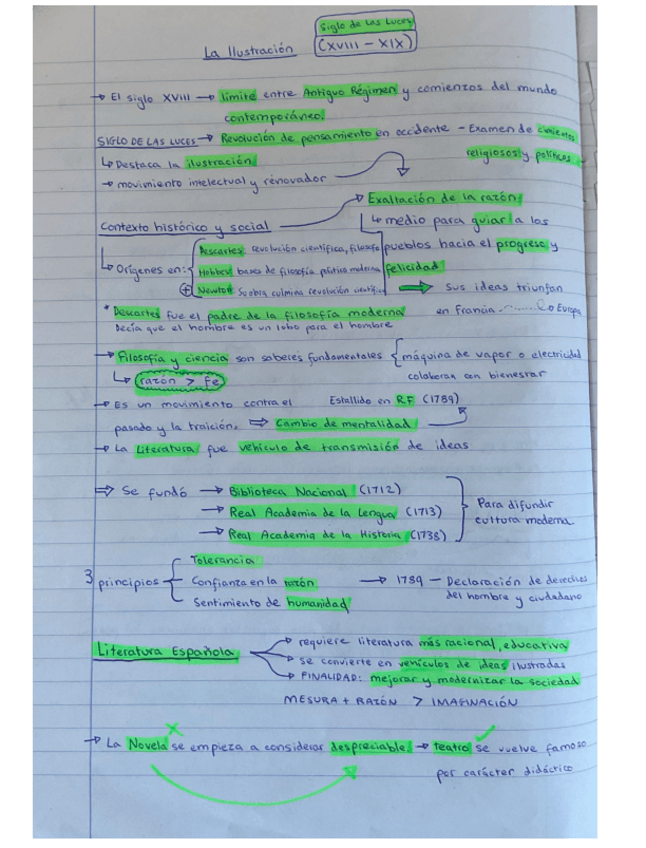 Siglo de Las Luces
La Ilustración (XVIII - XIX)
→ El siglo XVIII → límite entre Antiguo Régimen y comienzos del mundo
contemporáneo.
SIGLO DE LAS LUCES → Revolución de pensamiento en occidente - Examen de
↳ Destaca la ilustración religiosos y políticos
→ movimiento intelectual y renovador
→ Exaltación de la razón
Contexto histórico y social ↳ medio para guiar a los
pueblos hacia el progreso y
felicidad
↳ Orígenes en:
Descartes: revolución científica, filosofo
Hobbes: bases de filosofía política moderna
+ Newton: Su obra culmina revolución científica
⇒ sus ideas triunfan
en Francia ........ Europa
* Descartes fue el padre de la filosofía moderna
Decía que el hombre es un lobo para el hombre
→ Filosofía y ciencia son saberes fundamentales { máquina de vapor o electricidad
↳ razón > fe colaboran con bienestar
→ Es un movimiento contra el Estallido en RF (1789)
pasado y la traición. ⇒ Cambio de mentalidad
→ La Literatura fue vehículo de transmisión de ideas
⇒ Se fundó → Biblioteca Nacional (1712)
→ Real Academia de la Lengua (1713)
→ Real Academia de la Historia (1738)
} Para difundir
cultura moderna.
3 principios {
Tolerancia
Confianza en la razón → 1789 - Declaración de derechos
Sentimiento de humanidad del hombre y ciudadano
Literatura Española
→ requiere literatura más racional, educativa
→ se convierte en vehículos de ideas ilustradas
→ FINALIDAD: mejorar y modernizar la sociedad
MESURA + RAZÓN > IMAGINACIÓN
→ La Novela se empieza a considerar despreciable → teatro se vuelve famoso
por carácter didáctico